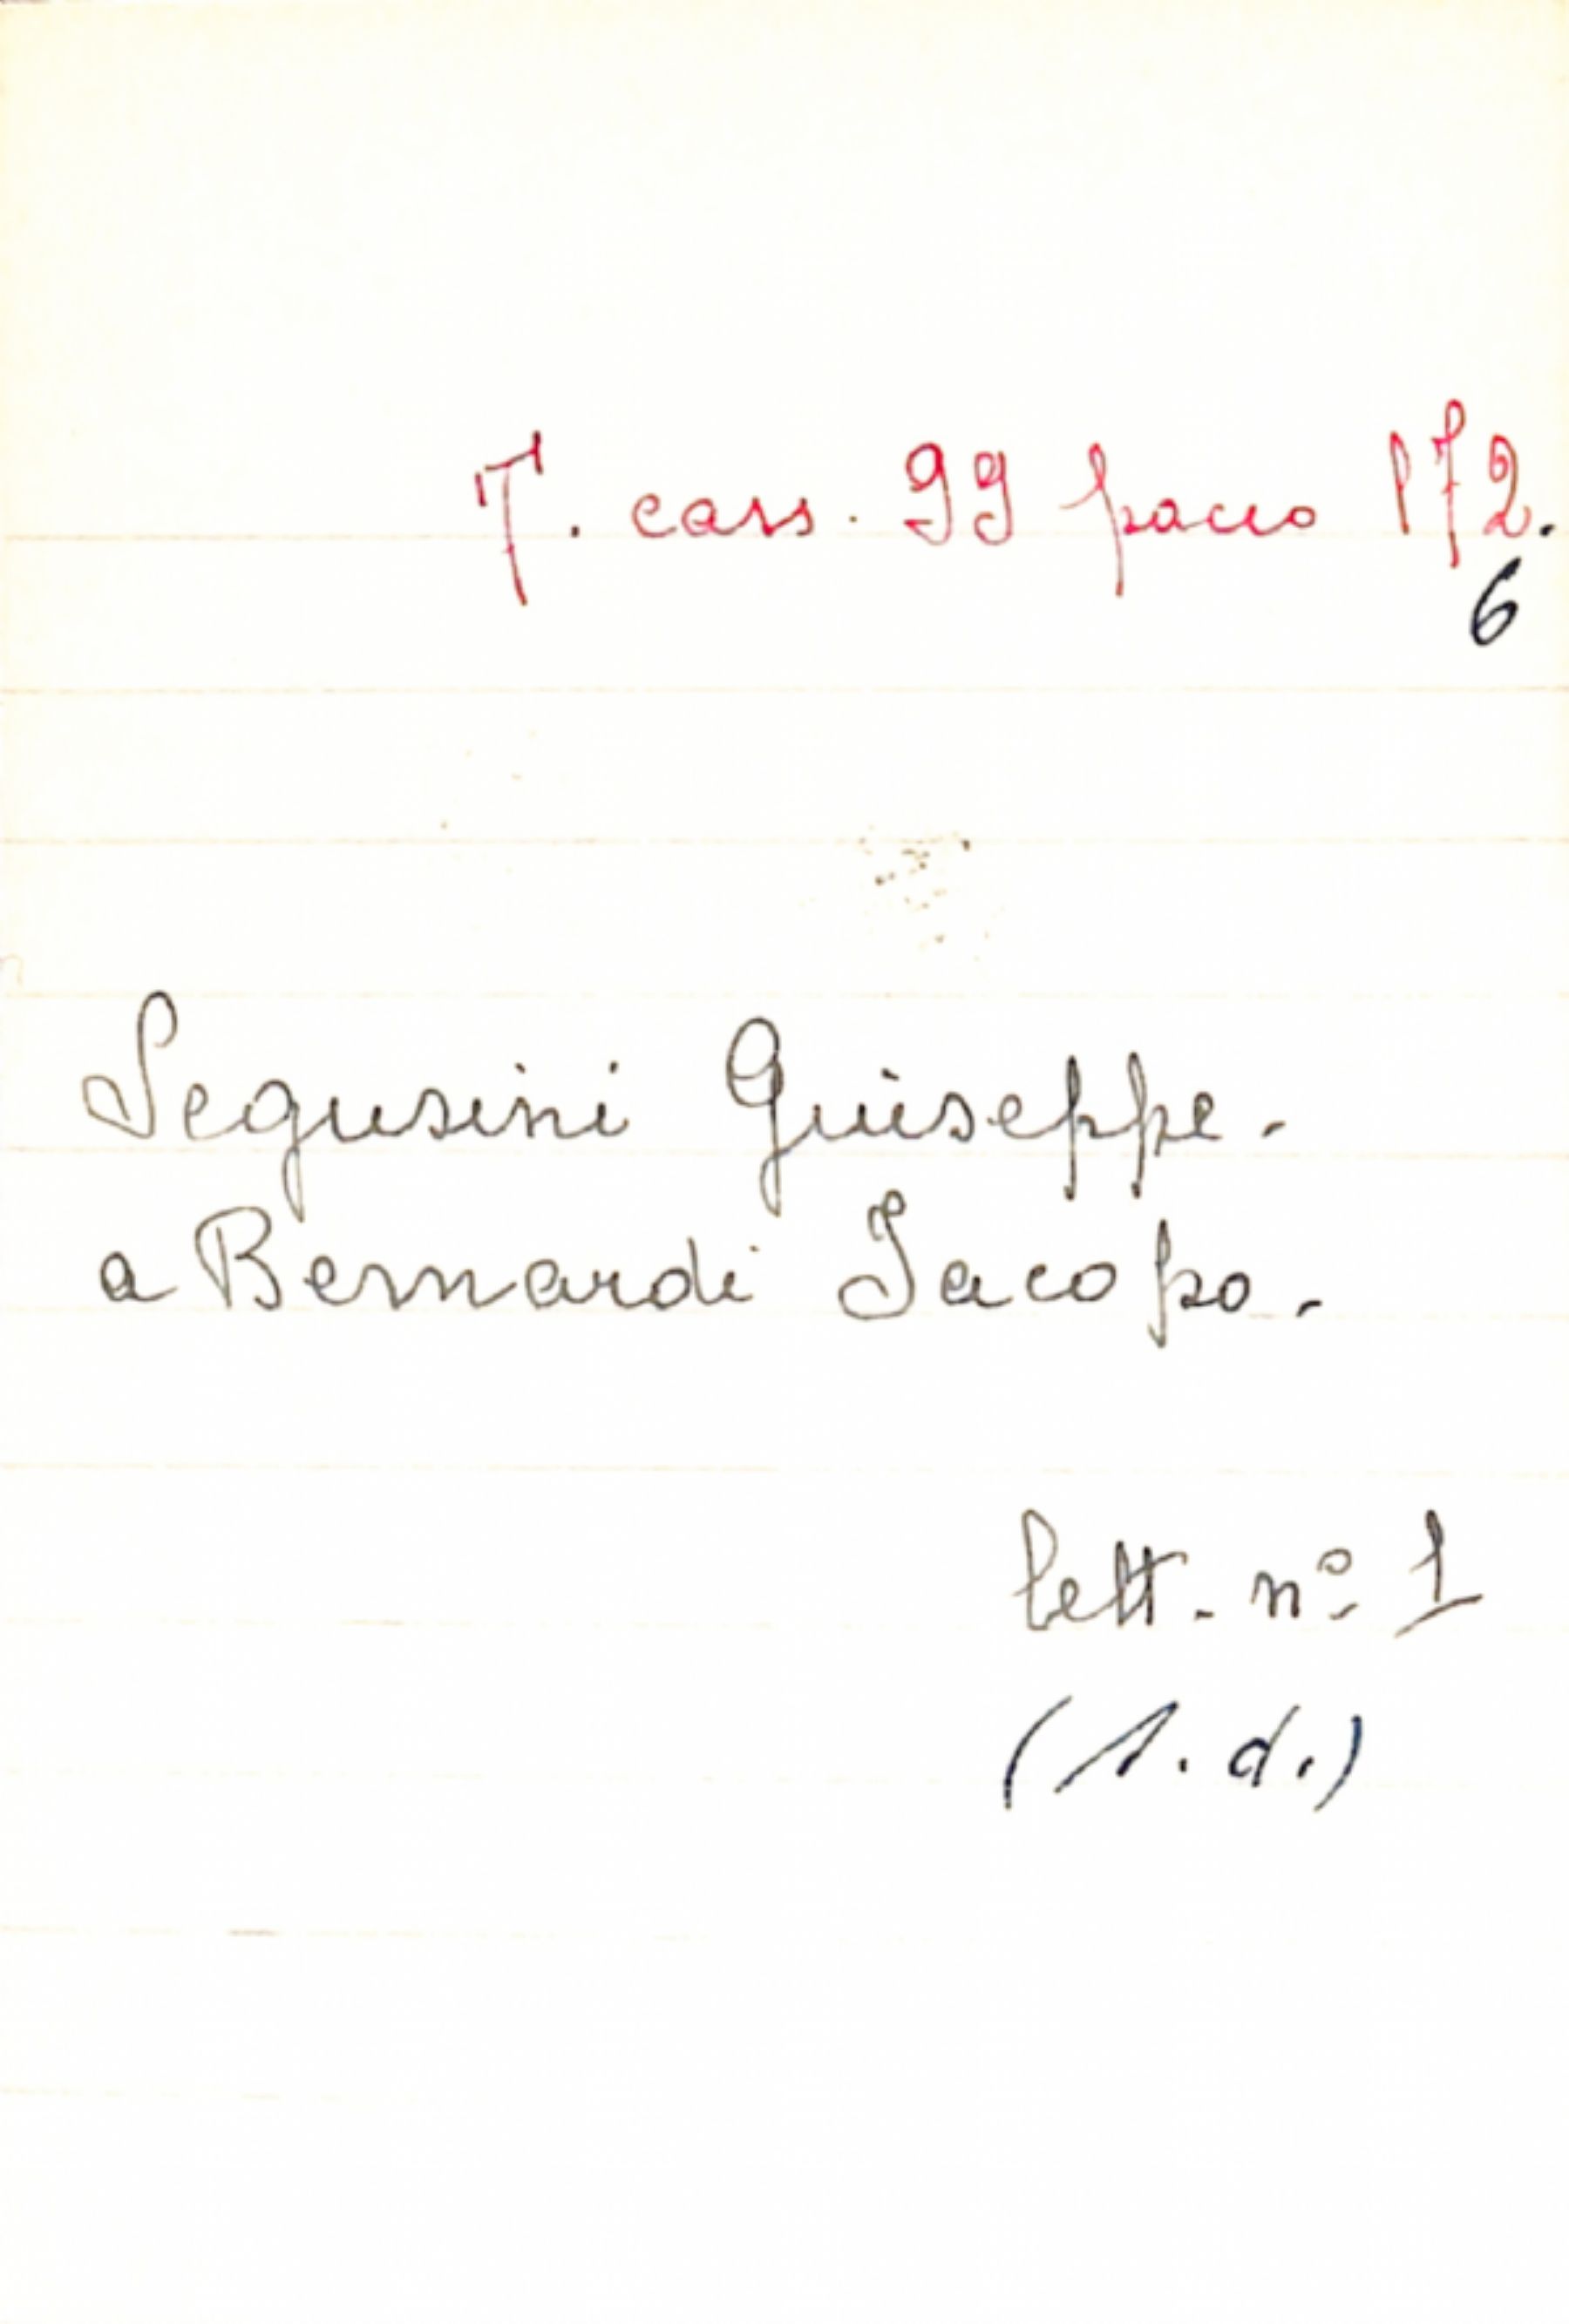 T. cass. 99 pacco 172.
6
Segusini Giuseppe.
a Bernardi Jacopo.
lett. nº 1
(s. d.)